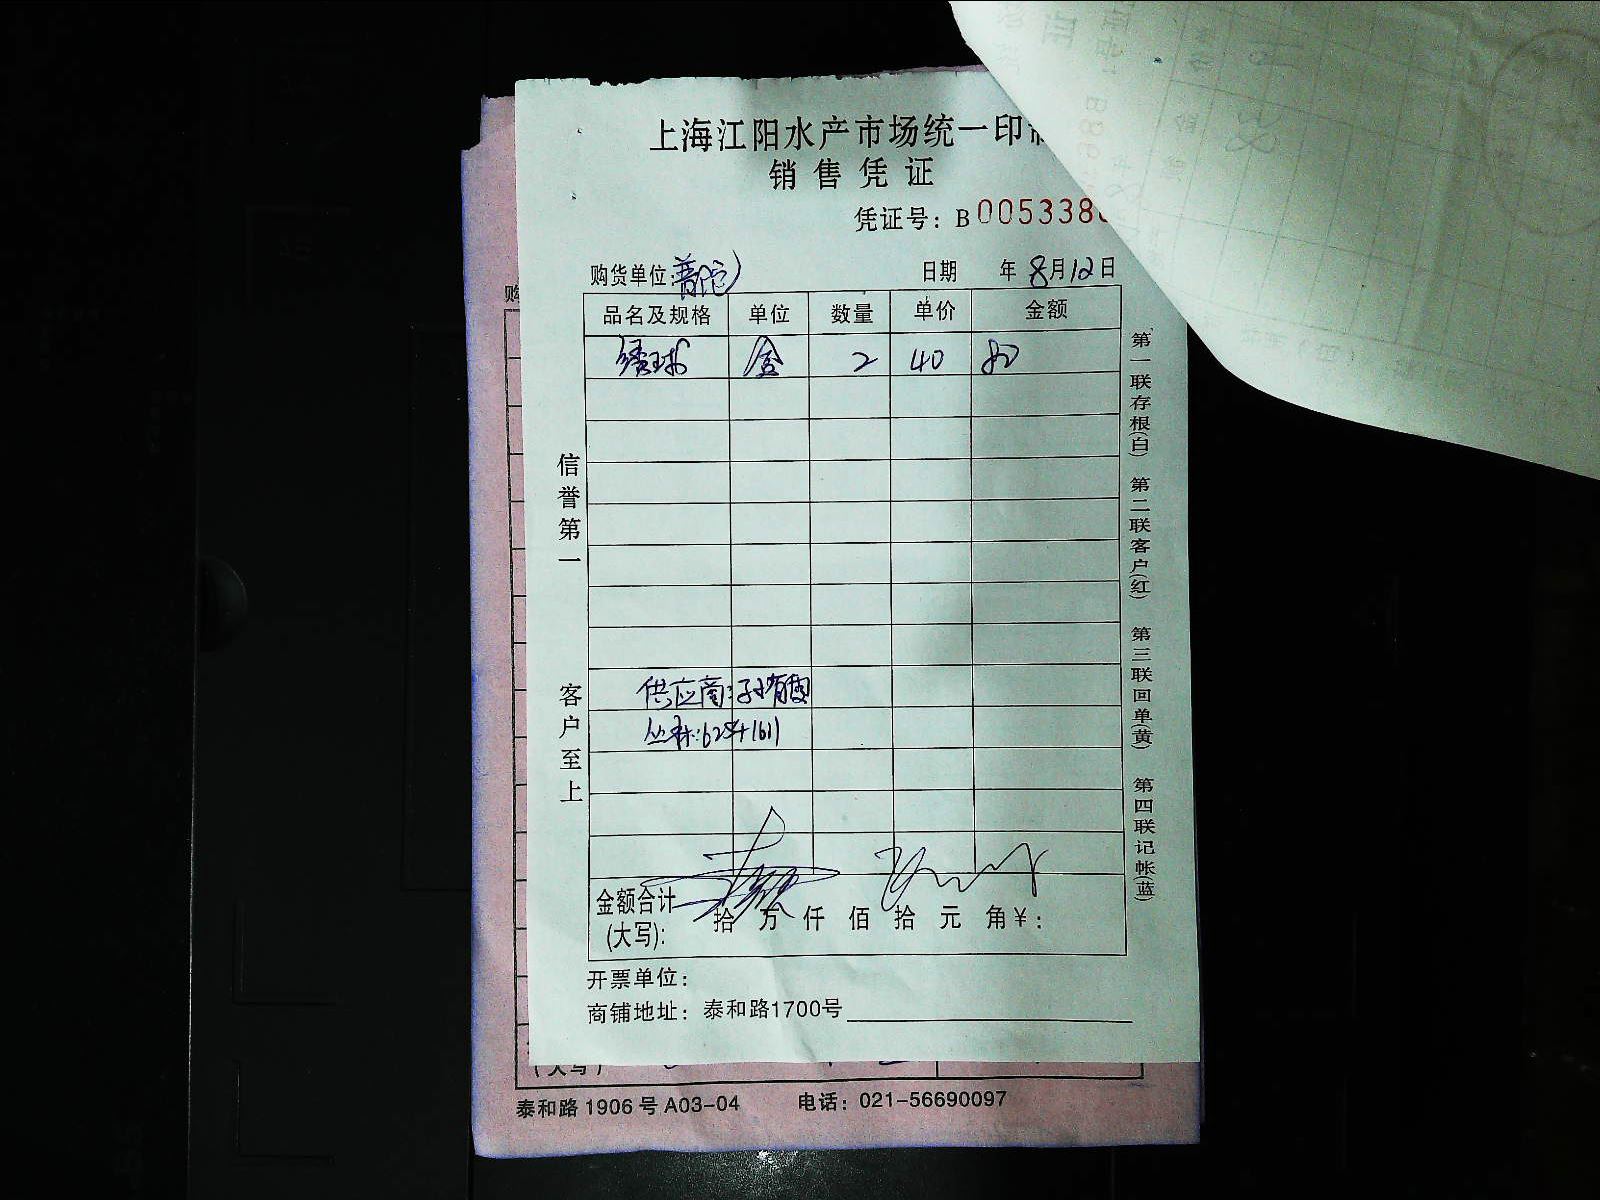 上海江阳水产市场统一印
销售凭证
凭证号：B 0053386
购货单位：普陀 日期 年8月12日
品名及规格 单位 数量 单价 金额
绣球 盒 2 40 80
信誉第一
客户至上
供应商：孙有国
丛林：6254 1611
金额合计(大写)： 拾 万 仟 佰 拾 元 角 ¥：
开票单位：
商铺地址：泰和路1700号
第一联存根(白) 第二联客户(红) 第三联回单(黄) 第四联记帐(蓝)
(大写)
泰和路1906号A03-04 电话：021-56690097